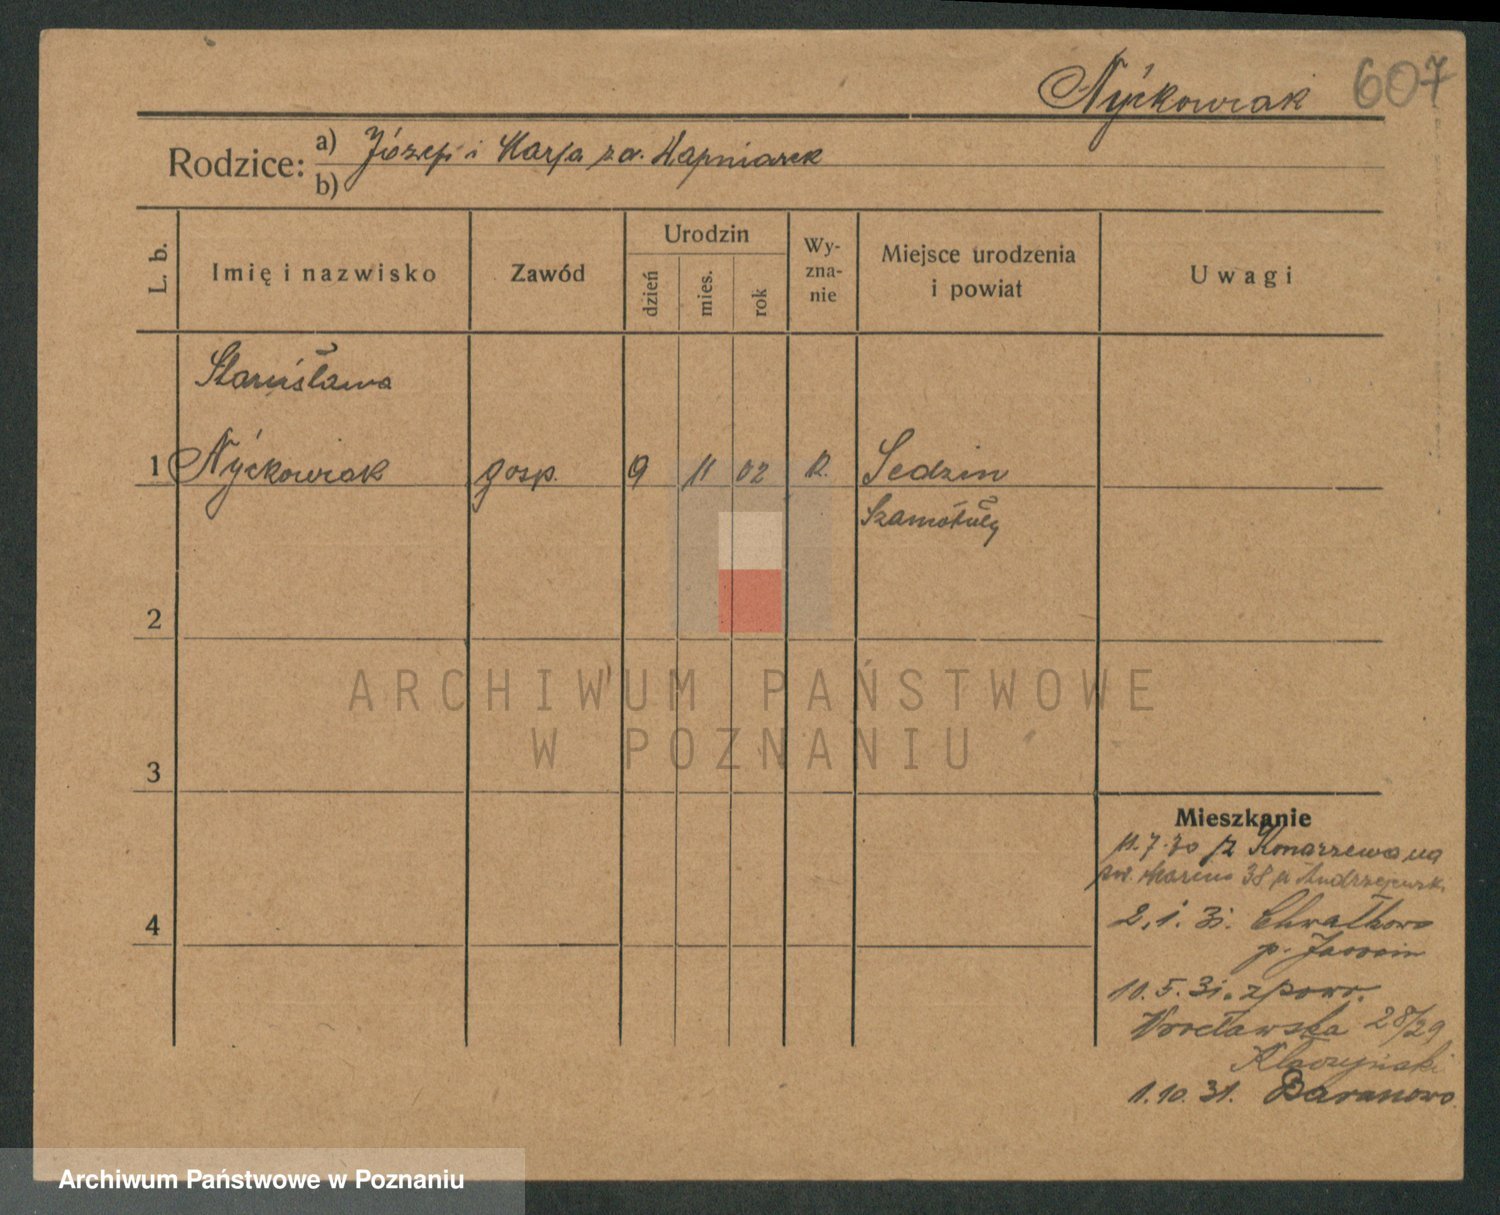 Nyćkowiak 607
Rodzice: a) Józef i Marja za. Kapniarek
b)
L. b.
Imię i nazwisko
Zawód
Urodzin
dzień
mies.
rok
Wy-
zna-
nie
Miejsce urodzenia
i powiat
Uwagi
Stanisława
1 Nyćkowiak gosp. 9 11 02 R. Sedzin
Szamotuły
2
ARCHIWUM PAŃSTWOWE
W POZNANIU
3
Mieszkanie
11.7.30 z Konarzewa na
św. Marcin 38 p Andrzejewski
4
2.1.31. Chwałkowo
p. Jarocin
10.5.31. z powr.
Wrocławska 28/29
1.10.31. Baranowo
Archiwum Państwowe w Poznaniu